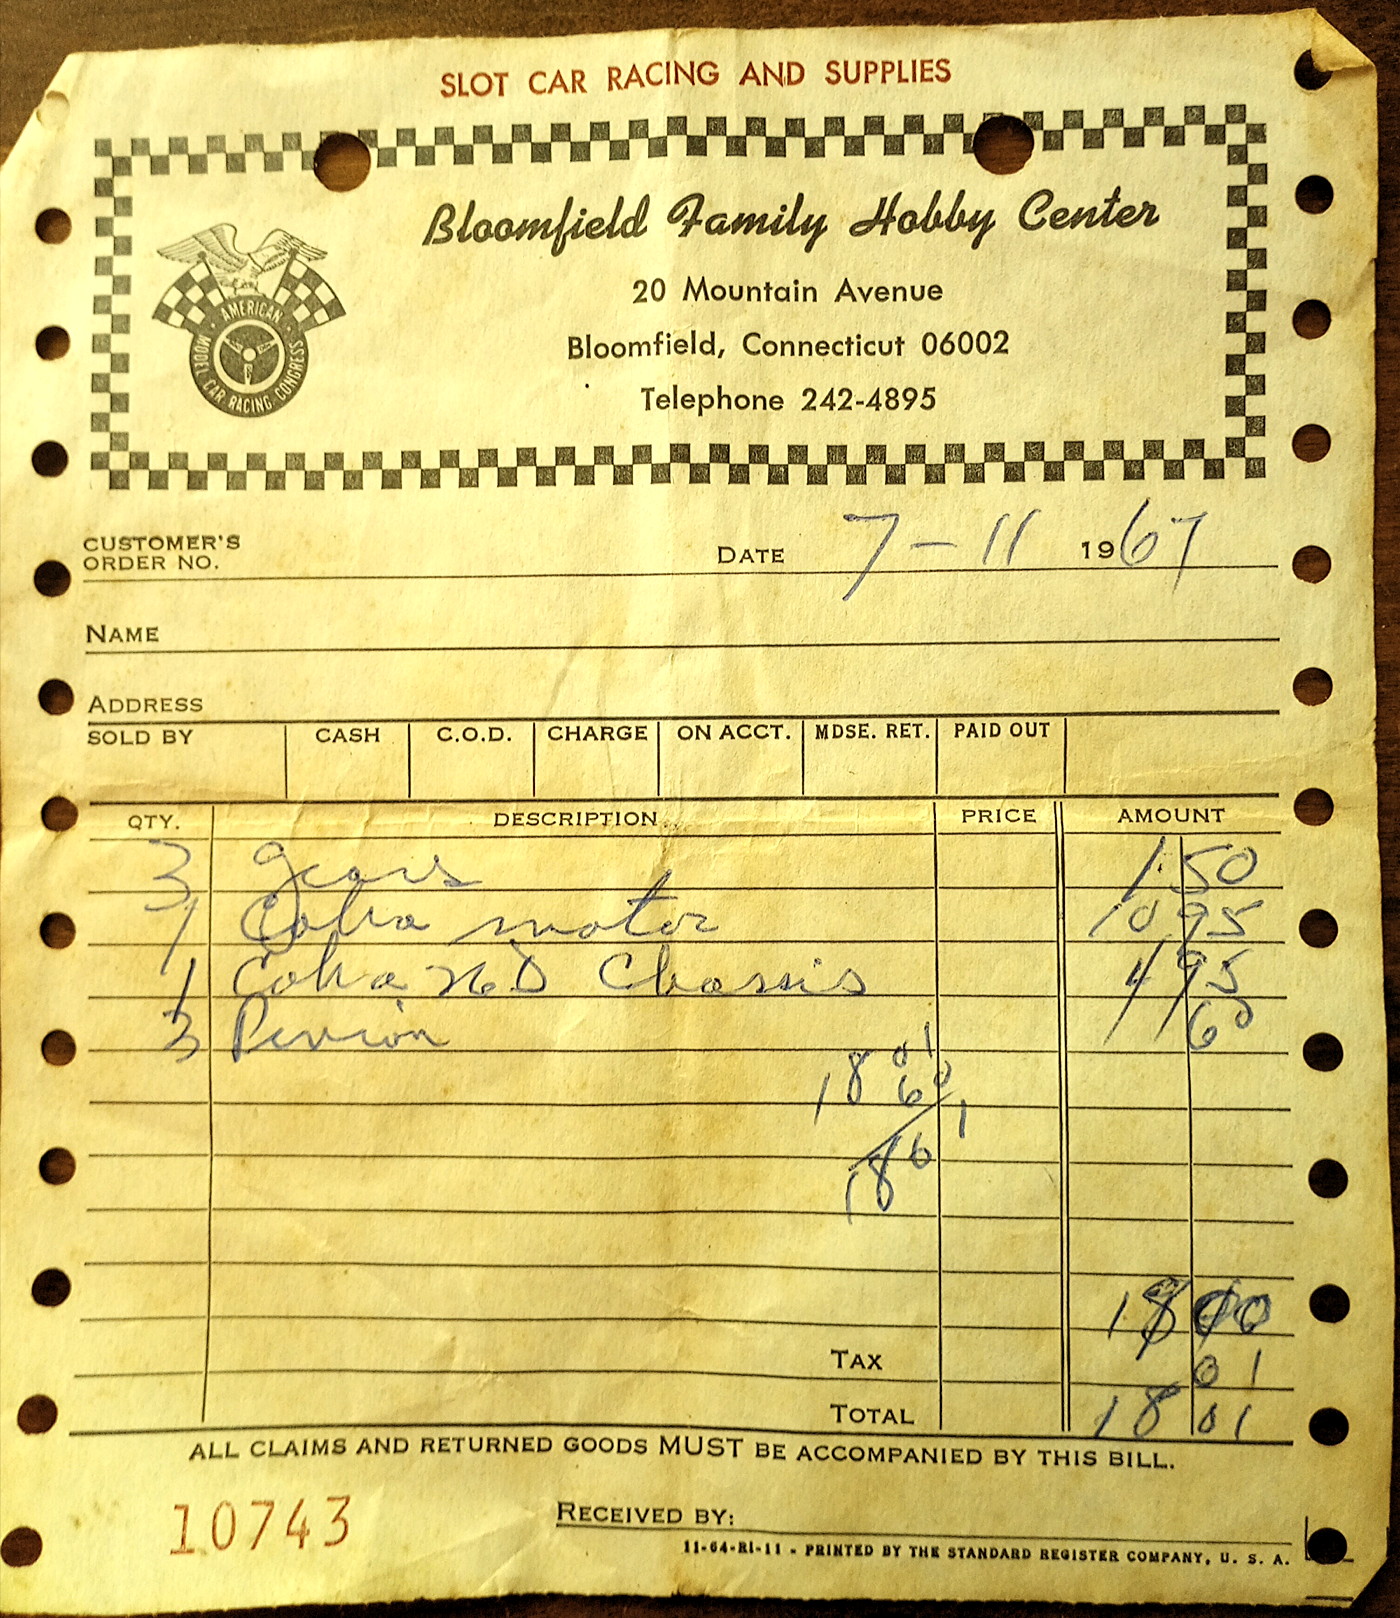 SLOT CAR RACING AND SUPPLIES
Bloomfield Family Hobby Center
20 Mountain Avenue
Bloomfield, Connecticut 06002
Telephone 242-4895
AMERICAN MODEL CAR RACING CONGRESS
CUSTOMER'S ORDER NO. DATE 7-11 1967
NAME
ADDRESS
SOLD BY CASH C.O.D. CHARGE ON ACCT. MDSE. RET. PAID OUT
QTY. DESCRIPTION PRICE AMOUNT
3 gears 1.50
1 Cobra motor 10 95
1 Cobra Chassis 4 95
3 60
01
18 60
18 61
18 00
TAX 01
TOTAL 18 01
ALL CLAIMS AND RETURNED GOODS MUST BE ACCOMPANIED BY THIS BILL.
10743
RECEIVED BY:
11-64-RI-11 - PRINTED BY THE STANDARD REGISTER COMPANY, U. S. A.